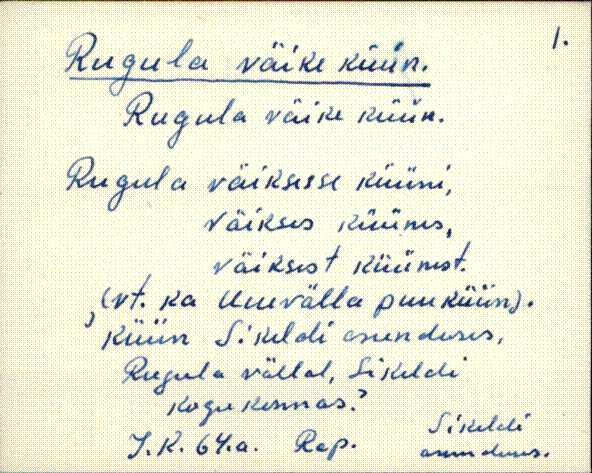 1.
Rugula väike küün.
Rugula väike küün.
Rugula väiksesse küüni,
väikses küünis,
väiksest küünist.
(vt. ka Uuevälla puuküün).
, küün Sikeldi asunduses,
Rugula vällal, Sikeldi
kogukonnas.'
J.K. 64.a. Rap. Sikeldi
asunduses.